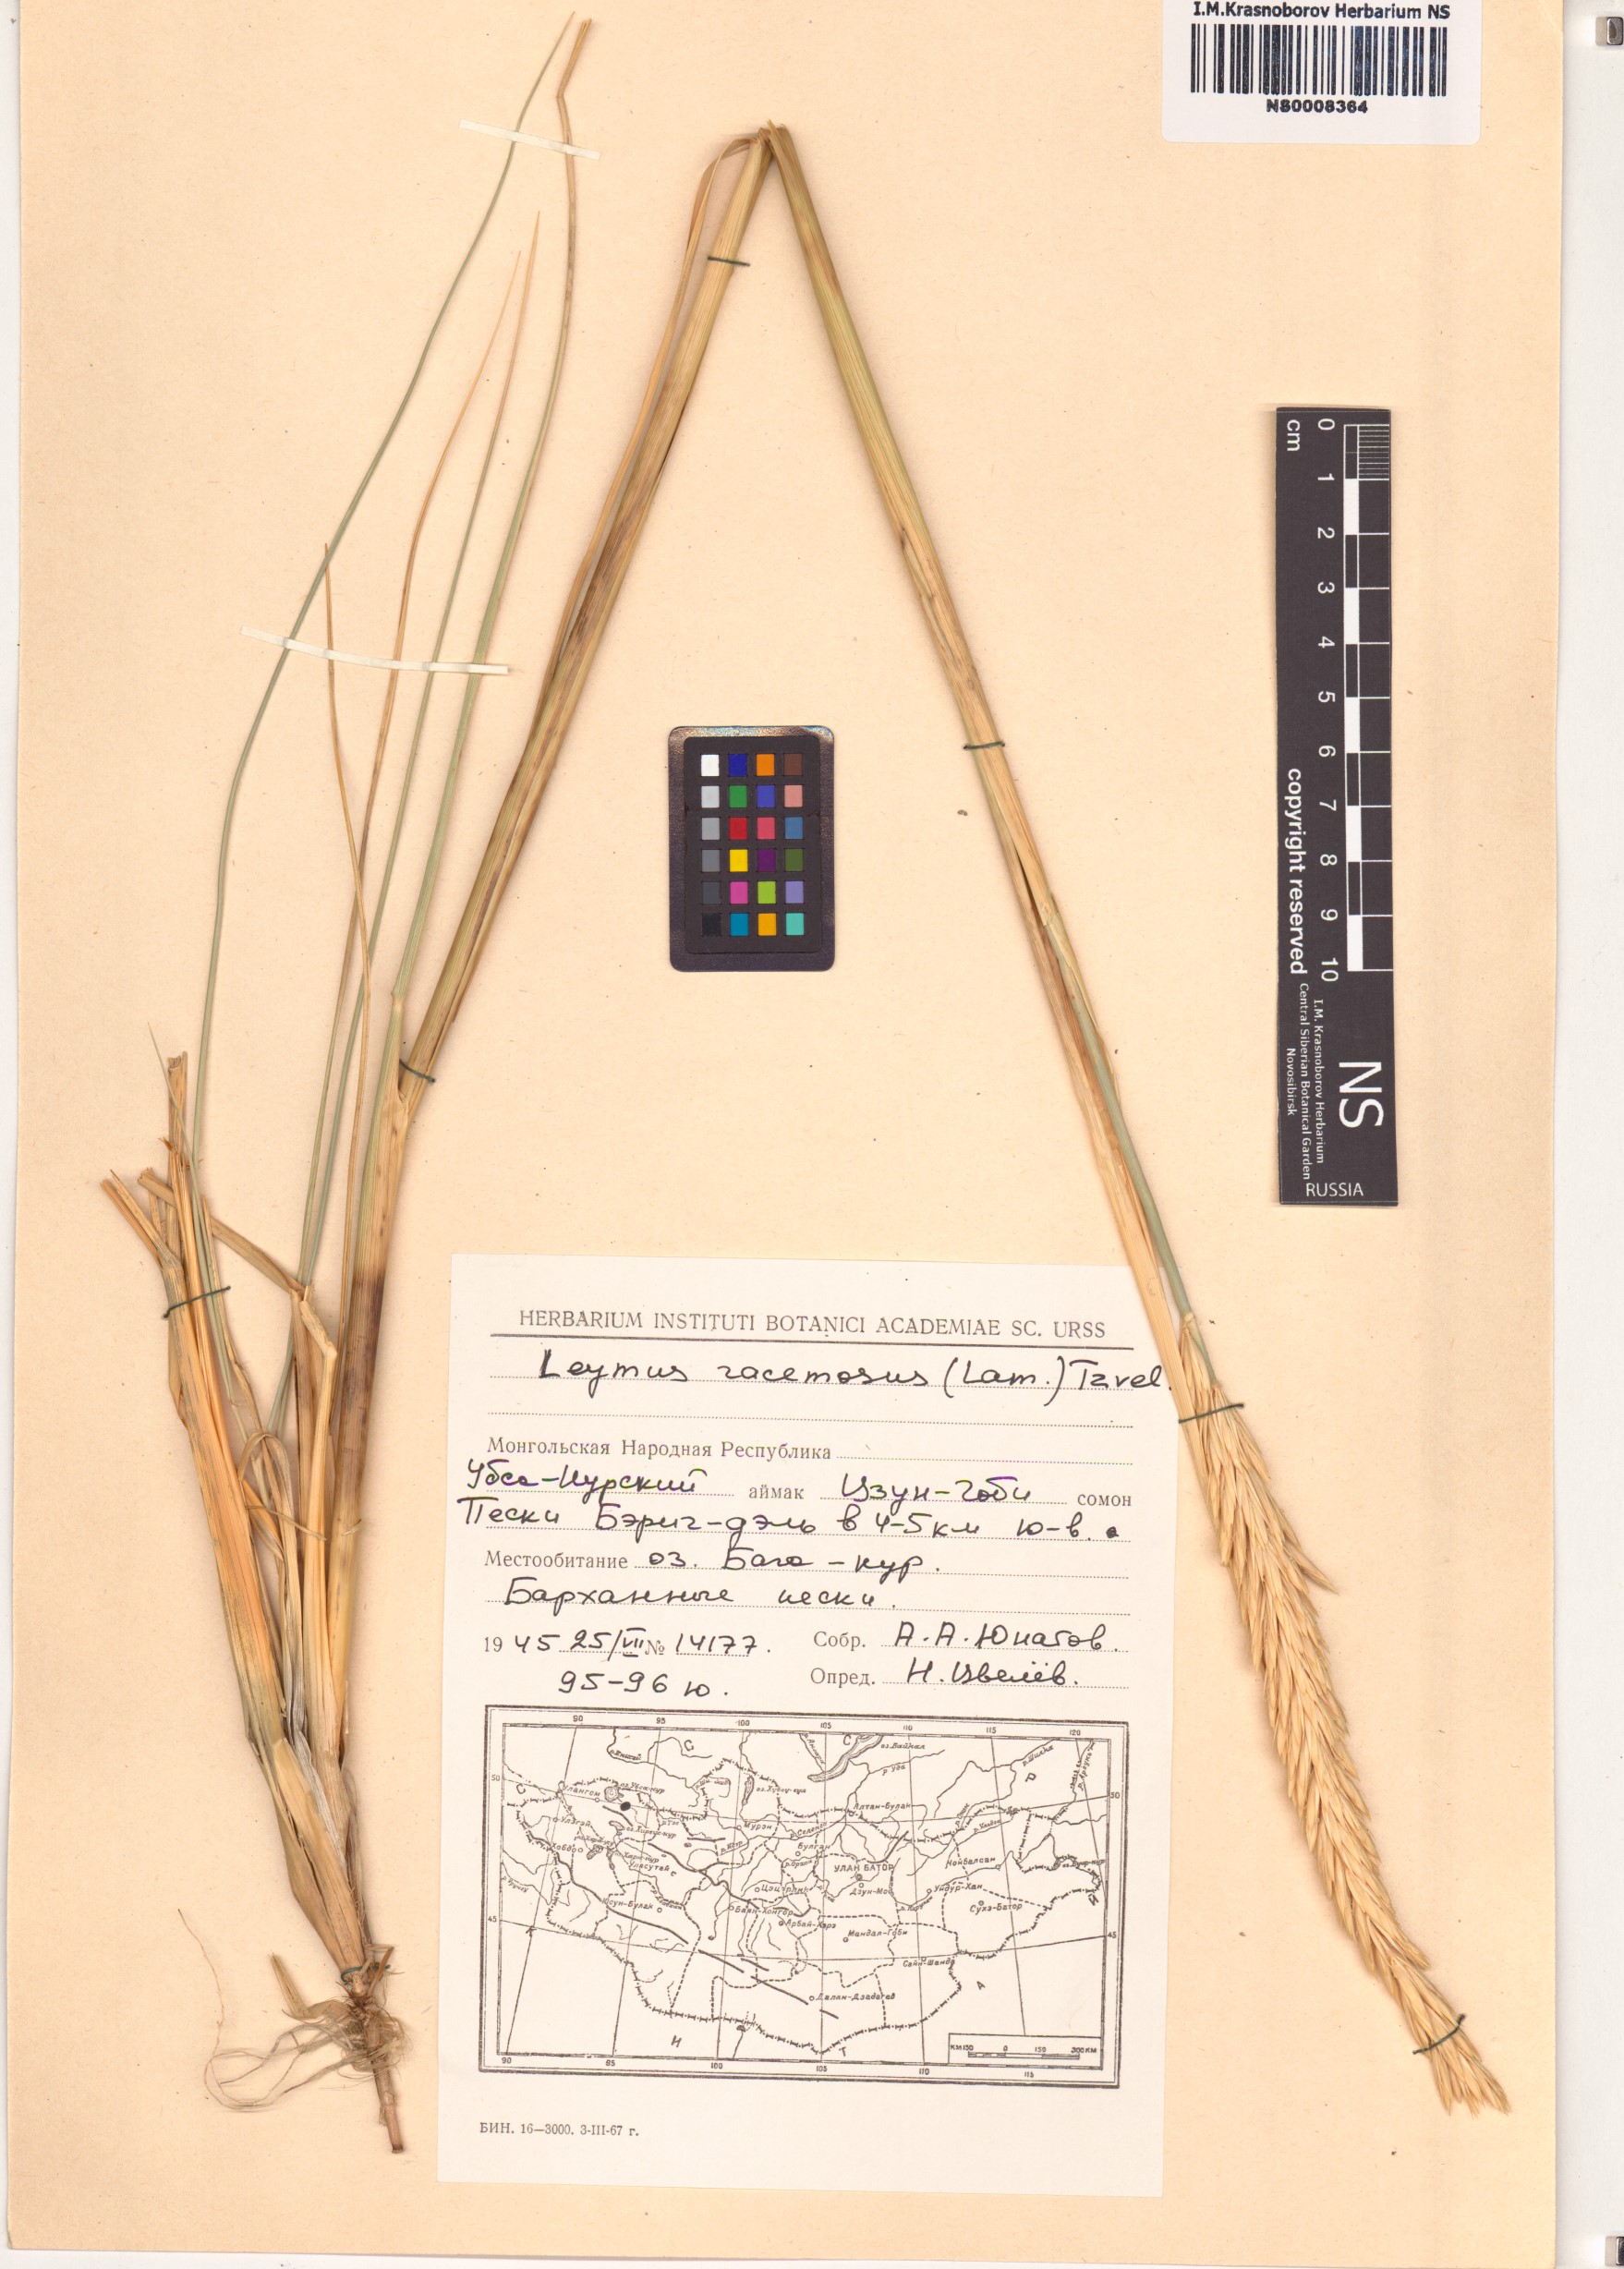 I.M.Krasnoborov Herbarium NS
NS0008364
cm
0 1 2 3 4 5 6 7 8 9 10
copyright reserved
I.M. Krasnoborov Herbarium
Central Siberian Botanical Garden
Novosibirsk
NS
RUSSIA
HERBARIUM INSTITUTI BOTANICI ACADEMIAE SC. URSS
Leymus racemosus (Lam.) Tzvel.
Монгольская Народная Республика
Убса-Нурский аймак Цзун-Гоби сомон
Пески Бэриг-дэль в 4-5 км ю-в.
Местообитание оз. Бага-нур.
Барханные пески.
1945 25/VII № 14177. Собр. А. А. Юнатов.
95-96 ю. Опред. Н. Цвелёв.
90 95 100 105 110 115 120
оз. Байкал
р. Уда
р. Шилка
50 50
Улангом
Алтан-Булак
Мурэн
р. Селенга
Булган
Кобдо
УЛАН БАТОР
Чойбалсан
Дзун-Мод
Ундур-Хан
Сухэ-Батор
Юсун-Булак
Баян-Хонгор
Арбай-Хэрэ
Мандал-Гоби
45 45
Сайн-Шанда
Далан-Дзадагад
К И Т А Й
КМ 150 0 150 300 КМ
90 95 100 105 110 115
БИН. 16—3000. 3-III-67 г.